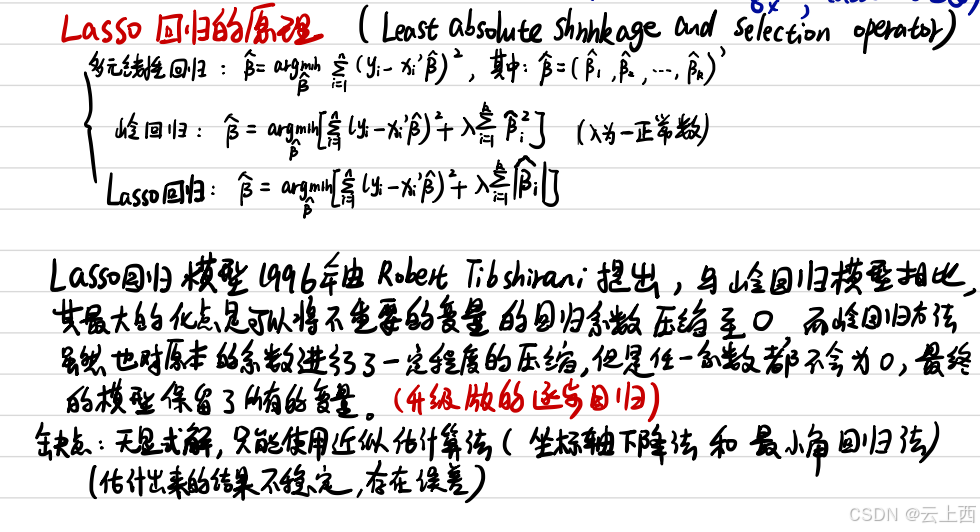 Lasso 回归的原理 (Least absolute shrinkage and selection operator)
多元线性回归: β̂ = argmin_β̂ Σ_{i=1}^{n} (yᵢ - xᵢ'β̂)², 其中: β̂ = (β̂₁, β̂₂, ..., β̂ₖ)'
岭回归: β̂ = argmin_β̂ [Σ_{i=1}^{n} (yᵢ - xᵢ'β̂)² + λ Σ_{i=1}^{k} β̂ᵢ²] (λ为一正常数)
Lasso回归: β̂ = argmin_β̂ [Σ_{i=1}^{n} (yᵢ - xᵢ'β̂)² + λ Σ_{i=1}^{k} |β̂ᵢ|]
Lasso回归模型 1996年由 Robert Tibshirani 提出, 与岭回归模型相比,
其最大的优点是可以将不重要的变量的回归系数压缩至0 而岭回归方法
虽然也对原本的系数进行了一定程度的压缩, 但是任一系数都不会为0, 最终
的模型保留了所有的变量。(升级版的逐步回归)
缺点: 无显式解, 只能使用近似估计算法 (坐标轴下降法 和 最小角回归法)
(估计出来的结果不稳定, 存在误差)
CSDN @云上西